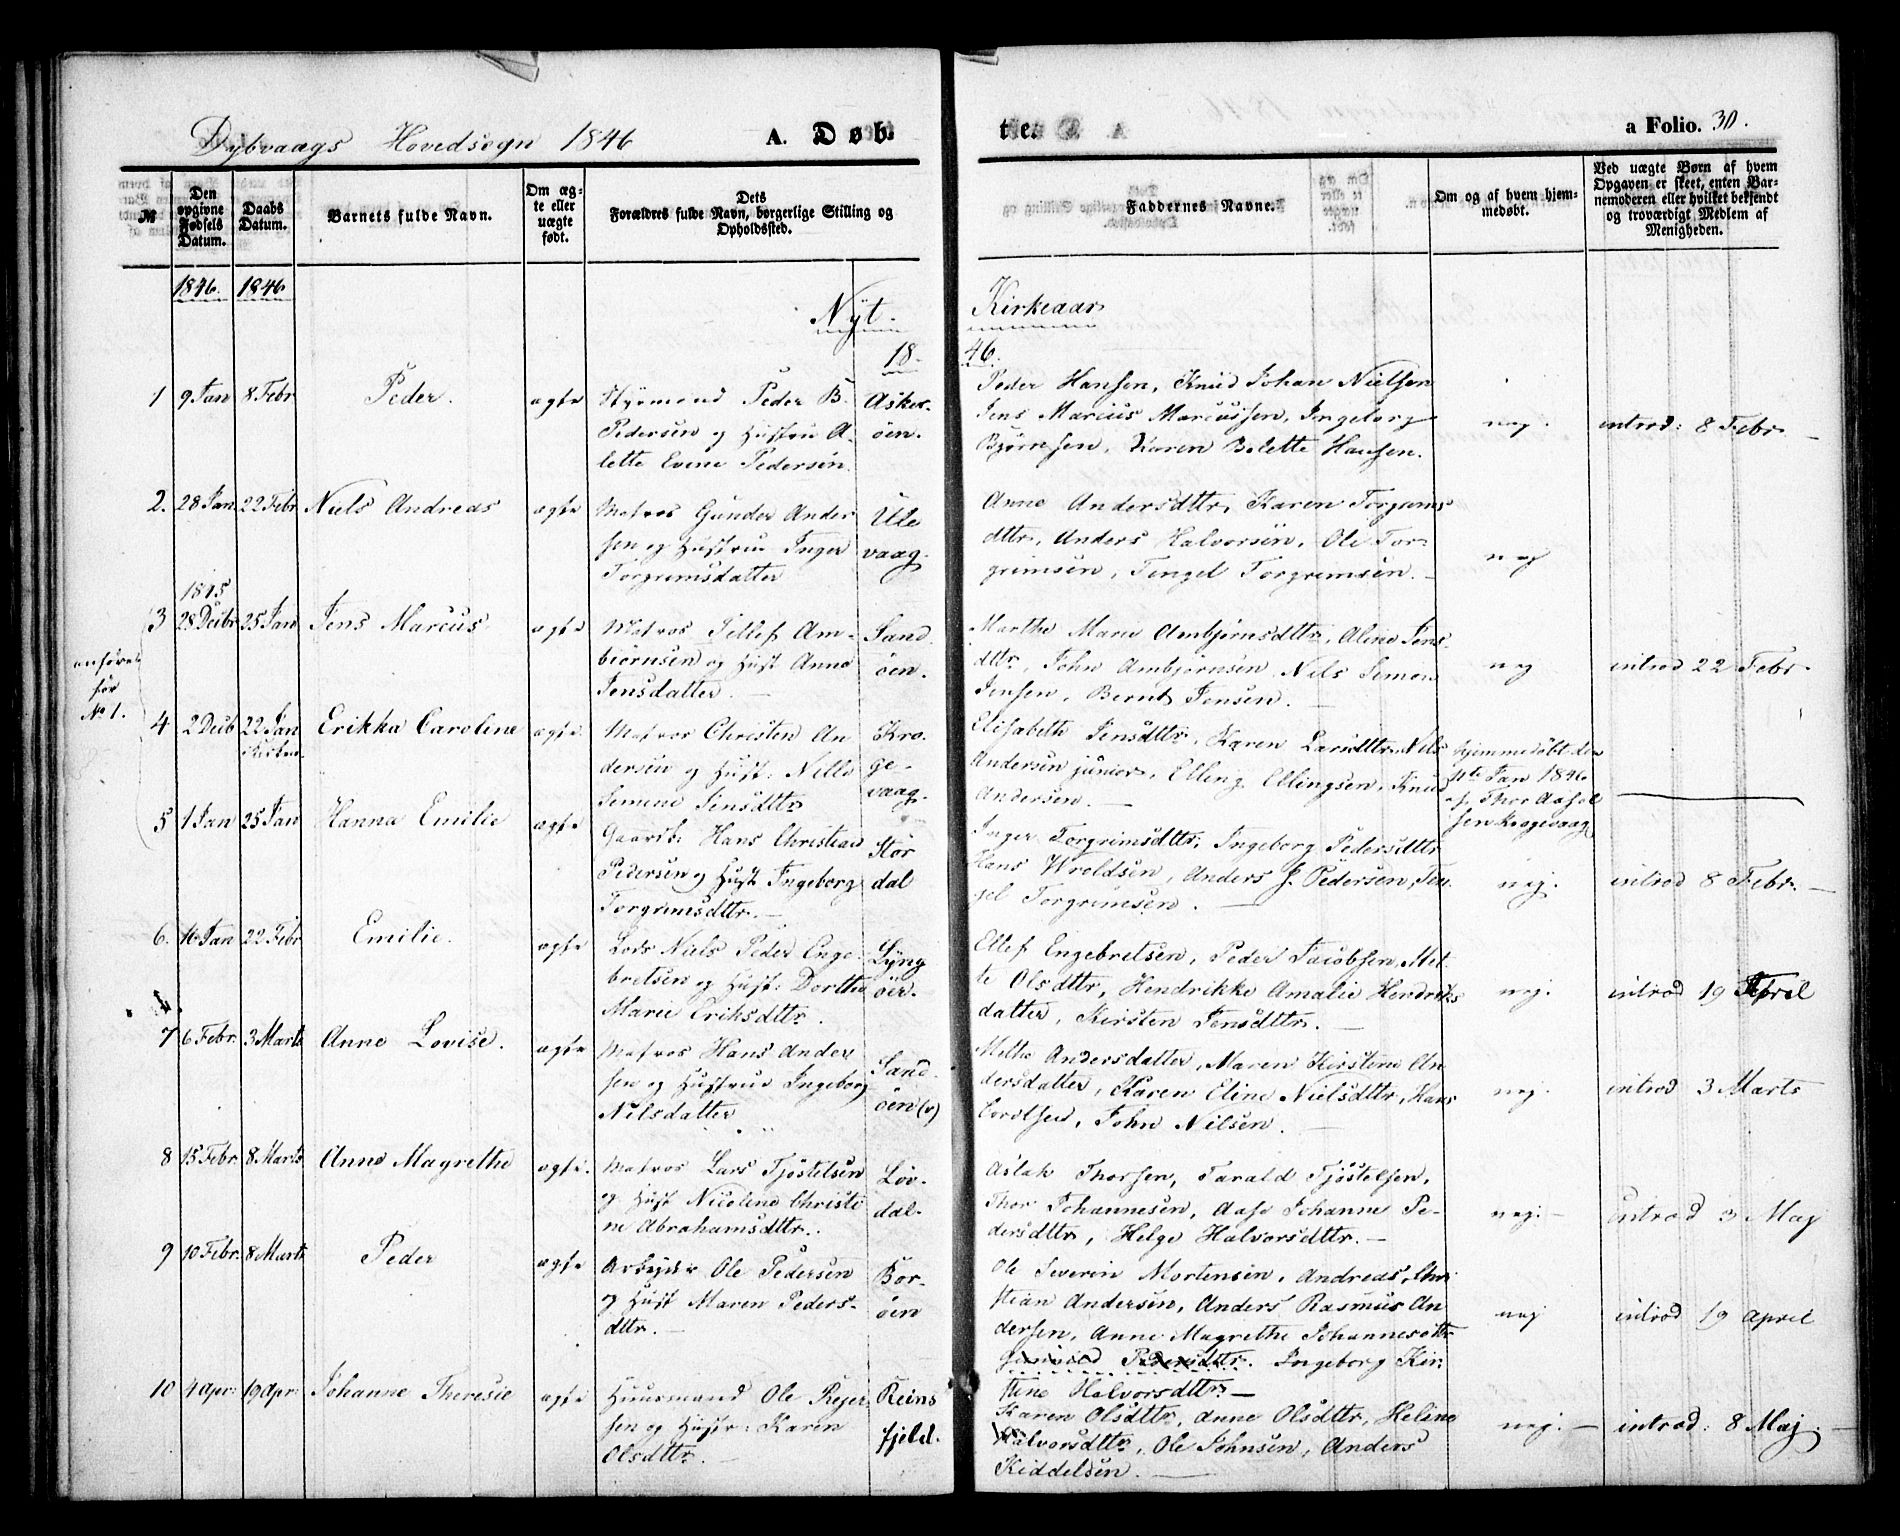 Dybvaags Hovedsogn 1846 A. Døbte. a Folio. 30.
№
Den opgivne Fødsels Datum.
Daabs Datum.
Barnets fulde Navn.
Om ægte eller uægte født.
Dets Forældres fulde Navn, borgerlige Stilling og Opholdssted.
Faddernes Navne.
Om og af hvem hjemmedøbt.
Ved uægte Børn af hvem Opgaven er skeet, enten Barnemoderen eller hvilket bekjendt og troværdigt Medlem af Menigheden.
1846. 1846
Nÿt. Kirkeaar
18 46.
1 9 Jan 8 Febr Peder. ægte
Peder B.
Pedersen og Hustru A-
lette Evine Pedersen.
Asker-
öen.
Peder Hansen, Knud Johan Nielsen
Jens Marcus Marcussen, Ingeborg
Bjørnsen, Karen Bolette Hansen.
nej. introd: 8 Febr.
2. 28 Jan 22 Febr Niels Andreas ægte
Matros Gunder Ander
sen og Hustrue Inger
Torgremsdatter
Ule
vaag.
Anne Andersdttr, Karen Torgrims
dttr, Anders Halvorsen, Ole Tor-
grimsen, Tengel Torgremsen.
nej
1845
3 28 Decbr 25 Jan Jens Marcus ægte
Matros Tellef Am-
biörnsen og Hust Anne
Jensdatter.
Sand
öen.
Marthe Marie Ambjørnsdttr, Aline Jens
dttr, John Ambjørnsen, Nils Simon
Jensen, Bernt Jensen.
nej introd 22 Febr.
anføres
før
No 1.
4 2 Decb 22 Jan Erikka Caroline ægte.
Matros Christen An
dersen og Hust: Nille
Semine Jensdttr
Kro.
ge-
vaag.
Elisabeth Jensdttr, Karen Larsdttr, Nils
Andersen junior, Elling Ellingsen, Knud
Andersen.
hjemmedøbt den
11te Jan 1846
af Thor Aasel
sen Krogevaag
5 1 Jan 25 Jan Hanna Emilie ægte
Gaardb: Hans Christian
Pedersen og Hust Ingeborg
Torgrimsdttr.
Stor
dal
Inger Torgrimsdttr, Ingeborg Pedersdttr
Hans Wroldsen, Anders J. Pedersen, Ten
gel Torgrimsen.
nej. introd 8 Febr.
6. 16 Jan 22 Febr Emilie. ægte
Lods Niels Peder Enge-
bretsen og Hust: Dorthea
Marie Eriksdttr.
Lÿng
öer.
Ellef Engebretsen, Peder Jacobsen, Met-
te Olsdttr, Hendrikke Amalie Hendriks
datter, Kirsten Jensdttr.
nej. introd 19 April
7 6 Febr. 3 Marts Anne Lovise. ægte
Matros Hans Ander
sen og Hustrue Ingeborg
Nilsdatter
Sand.
öen (v)
Methe Andersdatter, Maren Kirstine An
dersdatter, Karen Eline Nielsdttr, Hans
Cordtsen, John Nilsen.
nej. introd 3 Marts
8 15 Febr. 8 Marts Anne Magrethe ægte.
Matros Lars Tjöstelsen
og Hust Nicoline Christi
ne Abrahamsdttr.
Löv-
dal.
Aslak Thorsen, Tarald Tjöstelsen,
Thor Johannesen, Aase Johanne Pe-
dersdttr, Helge Halvorsdttr.
nej. introd 3 Maj
9 10 Febr. 8 Marts Peder ægte
Arbejder Ole Pedersen
og Hust Maren Peders-
dttr.
Bor-
öen
Ole Severin Mortensen, Andreas Chri
stian Andersen, Anders Rasmus An
dersen, Anne Magrethe Johannesdttr
Pedersdttr. Ingeborg Kir-
stine Halvorsdttr.
nej introd 19 April
10 4 Apr: 19 Apr: Johanne Theresie ægte
Huusmand Ole Rejer
sen og Hustr: Karen
Olsdttr.
Reins
fjeld.
Karen Olsdttr, Anne Olsdttr, Heline
Halvorsdttr, Ole Johnsen, Anders
Kiddelsen.
nej. introd: 8 Maj.